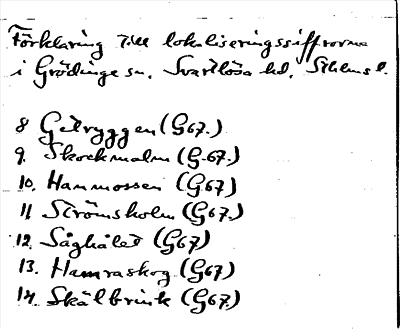 Förklaring till lokaliseringssiffrorna
i Grödinge sn. Svartlösa hd. Sthlms l.
8 Getryggen (G67.)
9. Skockmalm (G.67.)
10. Hammossen (G67)
11 Strömsholm (G67.)
12. Såghålet (G67)
13. Hamraskog (G67)
14. Skälbrink (G67.)